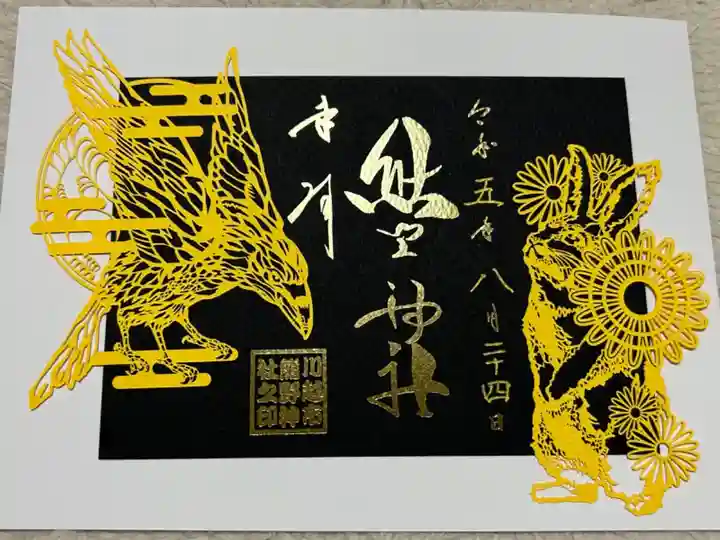 令和五年八月二十四日
熊野神社
奉拝
川越市
熊野神
社之印